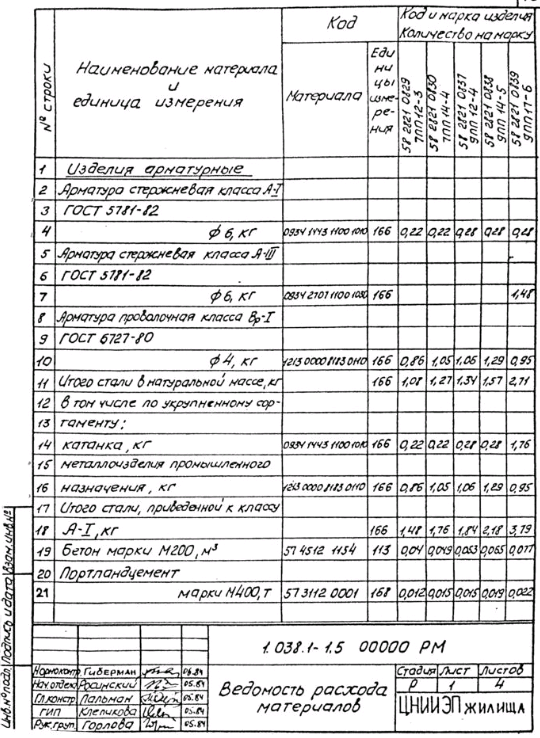 Код
Код и марка изделия
Количество на марку
№ строки
Наименование материала
и
единица измерения
Материала
Еди
ни
цы
изме-
ре-
ния
58 2821 0829
7ПП12-3
58 2821 0830
7ПП14-4
58 2821 0837
9ПП12-4
58 2821 0838
9ПП14-5
58 2821 0839
9ПП17-6
1 Изделия арматурные
2 Арматура стержневая класса А-I
3 ГОСТ 5781-82
4 ф 6, кг 0934 1143 1100 1010 166 0,22 0,22 0,28 0,28 0,28
5 Арматура стержневая класса А-III
6 ГОСТ 5781-82
7 ф 6, кг 166 1,48
8 Арматура проволочная класса Вр-I
9 ГОСТ 6727-80
10 ф 4, кг 1213 0000 8183 0110 166 0,86 1,05 1,06 1,29 0,95
11 Итого стали в натуральной массе, кг 166 1,08 1,27 1,34 1,57 2,71
12 в том числе по укрупненному сор-
13 таменту:
14 катанка, кг 166 0,22 0,22 0,28 0,28 1,76
15 металлоизделия промышленного
16 назначения, кг 166 0,86 1,05 1,06 1,29 0,95
17 Итого стали, приведенной к классу
18 А-I, кг 166 1,48 1,76 1,84 2,18 3,79
19 Бетон марки М200, м³ 57 4512 1154 113 0,04 0,049 0,053 0,065 0,077
20 Портландцемент
21 марки М400, т 57 3112 0001 168 0,012 0,015 0,015 0,019 0,022
Инв.№подл. Подпись и дата Взам.инв.№
1.038.1-1.5 00000 РМ
Нормоконтр Гиберман 05.84
Нач.отдела Росинский 05.84
Гл.констр. Пальман 05.84
ГИП Клепикова 05.84
Рук.груп. Горлова 05.84
Ведомость расхода
материалов
Стадия Лист Листов
Р 1 4
ЦНИИЭП жилища